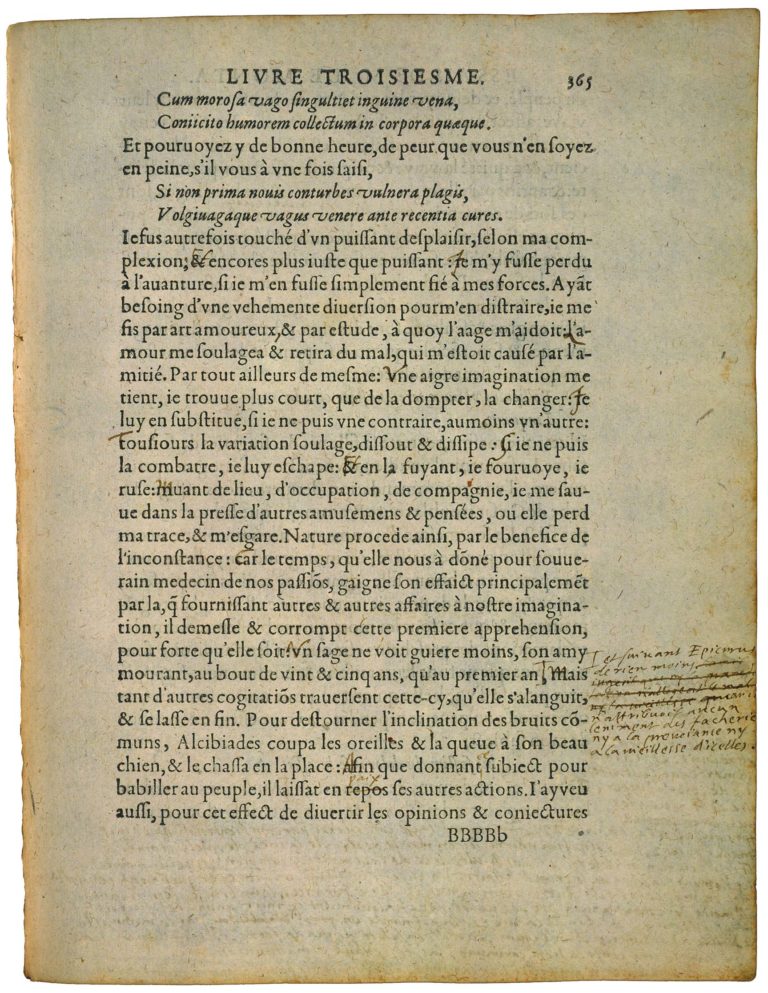 LIVRE TROISIESME. 365
Cum morosa vago singultiet inguine vena,
Coniicito humorem collectum in corpora quæque.
Et pouruoyez y de bonne heure, de peur que vous n'en soyez
en peine, s'il vous à vne fois saisi,
Si non prima nouis conturbes vulnera plagis,
Volgiuagaque vagus venere ante recentia cures.
Ie fus autrefois touché d'vn puissant desplaisir, selon ma com-
plexion; & encores plus iuste que puissant: Ie m'y fusse perdu
à l'auanture, si ie m'en fusse simplement fié à mes forces. Ayãt
besoing d'vne vehemente diuersion pour m'en distraire, ie me
fis par art amoureux, & par estude, à quoy l'aage m'aidoit: L'a-
mour me soulagea & retira du mal, qui m'estoit causé par l'a-
mitié. Par tout ailleurs de mesme: Vne aigre imagination me
tient, ie trouue plus court, que de la dompter, la changer: Ie
luy en substitue, si ie ne puis vne contraire, aumoins vn'autre:
Tousiours la variation soulage, dissout & dissipe: Si ie ne puis
la combatre, ie luy eschape: Et en la fuyant, ie fouruoye, ie
ruse: Muant de lieu, d'occupation, de compagnie, ie me sau-
ue dans la presse d'autres amusemens & pensées, ou elle perd
ma trace, & m'esgare. Nature procede ainsi, par le benefice de
l'inconstance: Car le temps, qu'elle nous à dõné pour souue-
rain medecin de nos passiõs, gaigne son effaict principalemẽt
par la, q̃ fournissant autres & autres affaires à nostre imagina-
tion, il demesle & corrompt cette premiere apprehension,
pour forte qu'elle soit: Vn sage ne voit guiere moins, son amy
mourant, au bout de vint & cinq ans, qu'au premier an, Mais
et suivant Epicurus
de rien moins
n'attribuoit aucun
leniment des facheries
ny a la prevoiance ny
a la vieillesse d'icelles.
tant d'autres cogitatiõs trauersent cette-cy, qu'elle s'alanguit,
& se lasse en fin. Pour destourner l'inclination des bruits cõ-
muns, Alcibiades coupa les oreilles & la queue à son beau
chien, & le chassa en la place: Afin que donnant subiect pour
paix
babiller au peuple, il laissat en repos ses autres actions. I'ay veu
aussi, pour cet effect de diuertir les opinions & coniectures
BBBBb